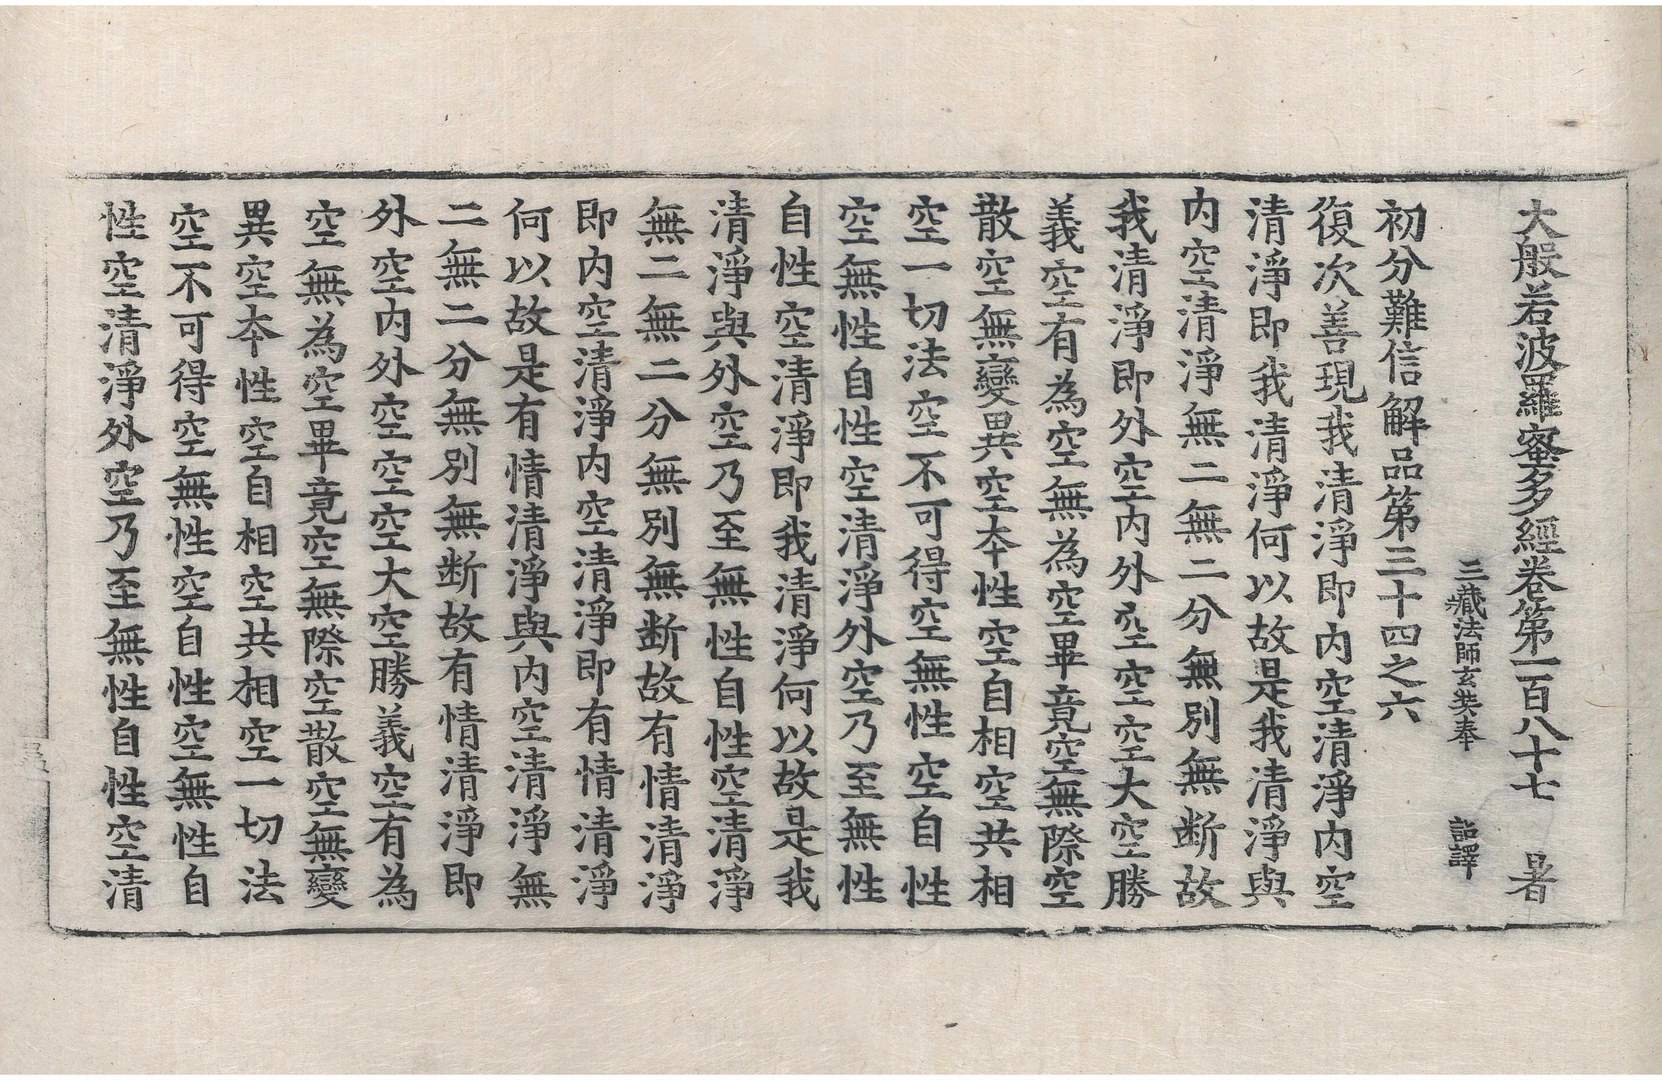 大般若波羅蜜多經卷第一百八十七　暑
三藏法師玄奘奉　詔譯
初分難信解品第三十四之六
復次善現我清淨即內空清淨內空
清淨即我清淨何以故是我清淨與
內空清淨無二無二分無別無断故
我清淨即外空內外空空空大空勝
義空有為空無為空畢竟空無際空
散空無變異空本性空自相空共相
空一切法空不可得空無性空自性
空無性自性空清淨外空乃至無性
自性空清淨即我清淨何以故是我
清淨與外空乃至無性自性空清淨
無二無二分無別無断故有情清淨
即內空清淨內空清淨即有情清淨
何以故是有情清淨與內空清淨無
二無二分無別無断故有情清淨即
外空內外空空空大空勝義空有為
空無為空畢竟空無際空散空無變
異空本性空自相空共相空一切法
空不可得空無性空自性空無性自
性空清淨外空乃至無性自性空清